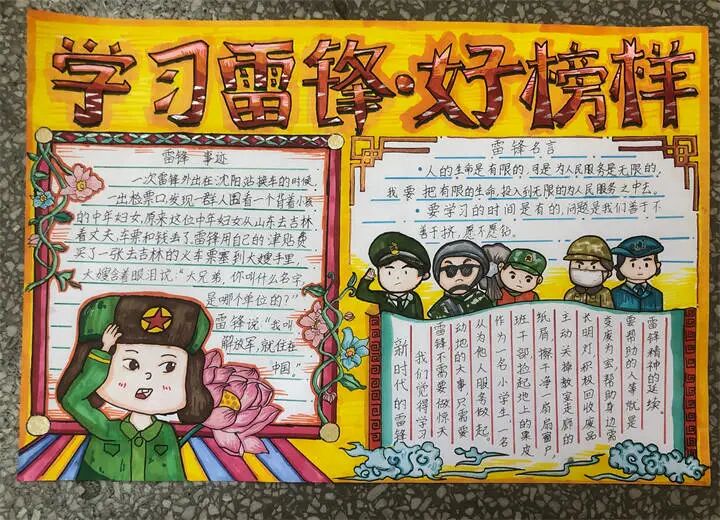 学习雷锋·好榜样
雷锋 事迹
一次雷锋外出在沈阳站换车的时候,
一出检票口,发现一群人围着一个背着小孩
的中年妇女,原来这位中年妇女从山东去吉林
看丈夫,车票和钱丢了,雷锋用自己的津贴费
买了一张去吉林的火车票塞到大嫂手里,
大嫂含着眼泪说:“大兄弟,你叫什么名字,
是哪个单位的?”
雷锋说“我叫
解放军,就住在
中国。”
雷锋名言
·人的生命是有限的,可是为人民服务是无限的,
我要把有限的生命,投入到无限的为人民服务之中去。
·要学习的时间是有的,问题是我们善于不
善于挤,愿不愿钻。
新时代的雷锋
我们觉得学习
雷锋不需要做惊天
动地的大事只需要
从为他人服务做起。
作为一名小学生,名
班干部捡起地上的果皮
纸屑,擦干净一扇扇窗户
主动关掉教室走廊的
长明灯,积极回收废品
变废为宝帮助身边需
要帮助的人,就是
雷锋精神的延续。